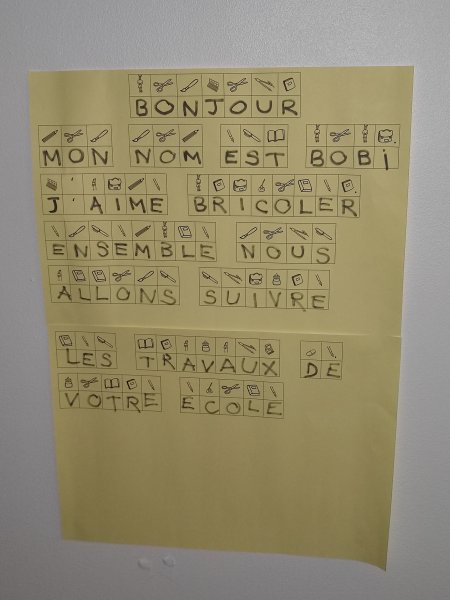 BONJOUR
MON NOM EST BOBi.
J'AIME BRICOLER.
ENSEMBLE NOUS
ALLONS SUIVRE
LES TRAVAUX DE
VOTRE ECOLE